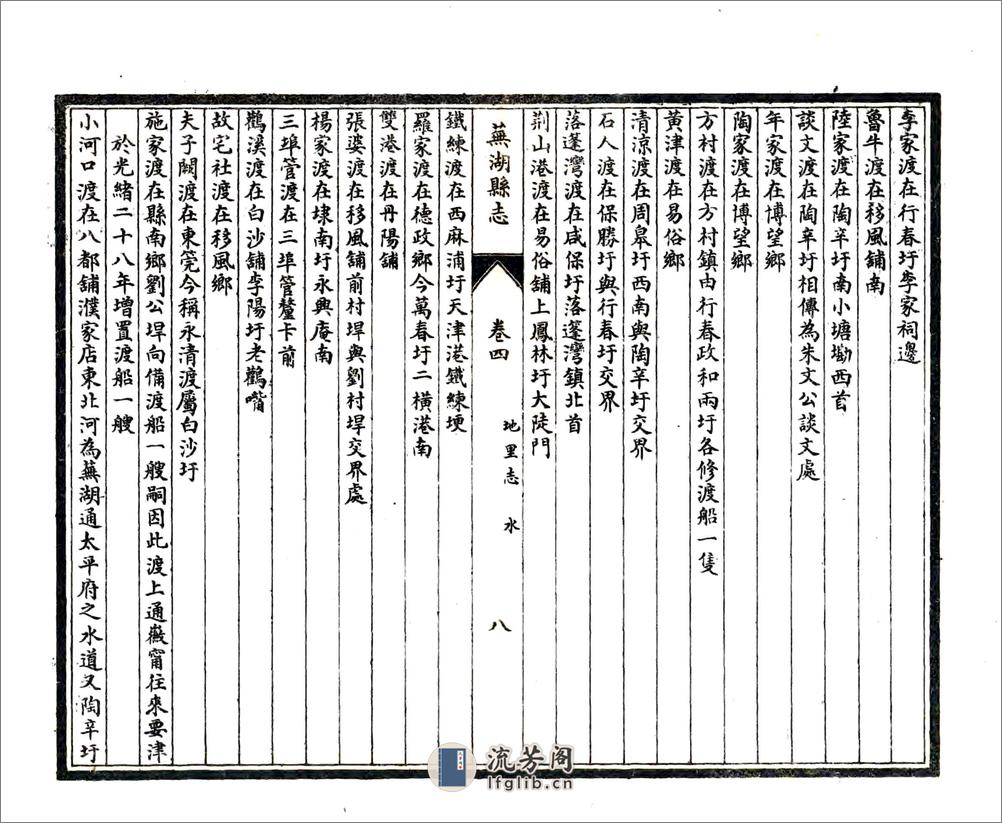 李家渡在行春圩李家祠邊
魯牛渡在移風舖南
陸家渡在陶辛圩南小塘坳西首
談文渡在陶辛圩相傳為朱文公談文處
年家渡在博望鄉
陶家渡在博望鄉
方村渡在方村鎮由行春政和兩圩各修渡船一隻
黃津渡在易俗鄉
清涼渡在周皋圩西南與陶辛圩交界
石人渡在保勝圩與行春圩交界
落蓬灣渡在咸保圩落蓬灣鎮北首
荆山港渡在易俗舖上鳳林圩大陡門
蕪湖縣志
卷四
地里志 水
八
鐵練渡在西麻浦圩天津港鐵練埂
羅家渡在德政鄉今萬春圩二橫港南
雙港渡在丹陽舖
張婆渡在移風舖前村埠與劉村埠交界處
楊家渡在埭南圩永興庵南
三埠管渡在三埠管釐卡前
鸛溪渡在白沙舖李陽圩老鸛嘴
故宅社渡在移風鄉
夫子闕渡在東筦今稱永清渡屬白沙圩
施家渡在縣南鄉劉公埠向備渡船一艘嗣因此渡上通徽甯往來要津
於光緒二十八年增置渡船一艘
小河口渡在八都舖濮家店東北河為蕪湖通太平府之水道又陶辛圩
流芳阁
lfglib.cn